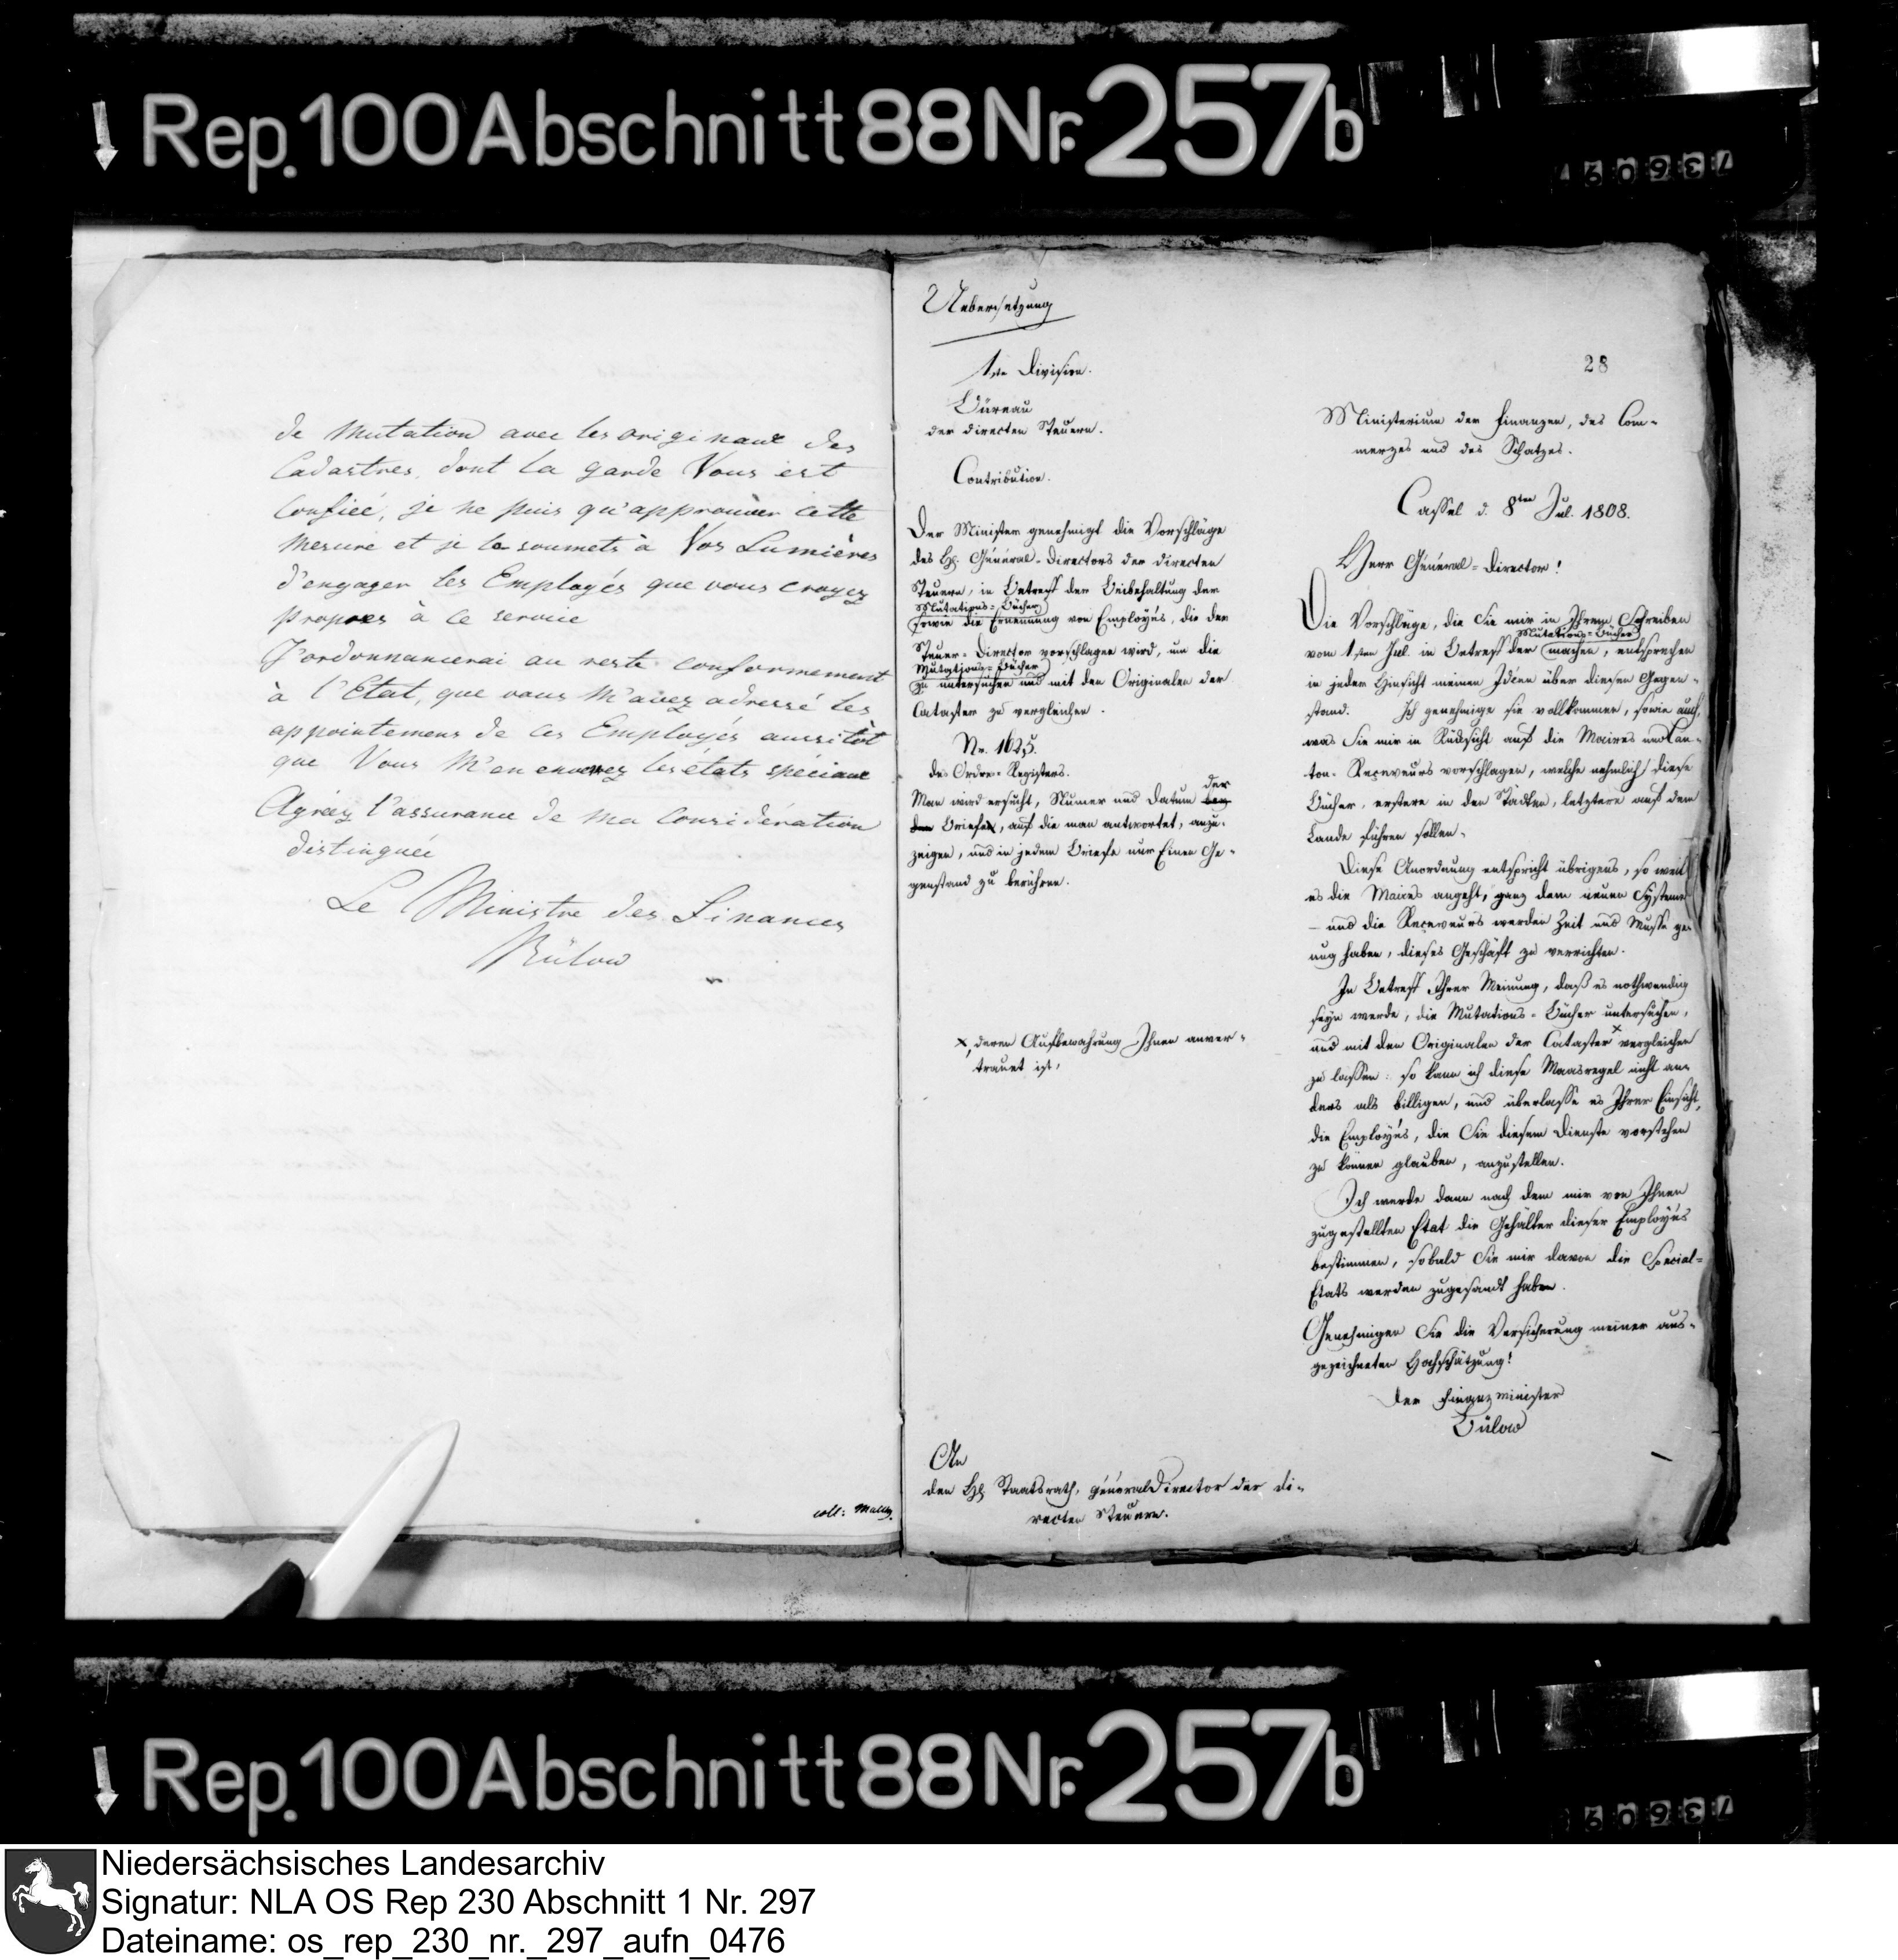 Rep. 100 Abschnitt 88 Nr. 257b
de Mutation avec les originaux des
Cadastres, dont la garde Vous est
Confiée, je ne puis qu'approuver cette
Mesure et je la soumets à Vos Lumières
d'engager les Employés que vous croyez
propres à ce service
J'ordonnancerai au reste conformement
à l'Etat, que vous M'avez adressé les
appointemens de ces Employés aussitôt
que Vous M'en enverrez les états speciaux
Agréez l'assurance de ma Considération
distinguée
Le Ministre des Finances
Bülow
coll:
Uebersetzung
1ste Division.
Büreau
der directen Steuern.
Contribution.
Der Minister genehmigt die Vorschläge
des H. Général-Directors der directen
Steuern, in Betreff der Beibehaltung der
Mutations-Bücher
sowie die Ernennung von Employés, die der
Steuer-Director vorschlagen wird, um die
Mutations-Bücher
zu untersuchen und mit den Originalen der
Cataster zu vergleichen.
Nr. 1625.
des Ordre-Registers.
Man wird ersucht, Numer und Datum der
Briefe, auf die man antwortet, anzu-
zeigen, und in jedem Briefe nur Einen Ge-
genstand zu berühren.
x, deren Aufbewahrung Ihnen anver-
trauet ist,
An
den H. Staatsrath, généralDirector der di-
recten Steuern.
28
Ministerium der Finanzen, des Com-
merzes und des Schatzes.
Cassel d. 8ten Jul. 1808.
Herr Général-Director!
Die Vorschläge, die Sie mir in Ihrem Schreiben
Mutations-Bücher
vom 1sten Jul. in Betreff der machen, entsprechen
in jeder Hinsicht meinen Idéen über diesen Gegen-
stand. Ich genehmige sie vollkommen, sowie auch,
was Sie mir in Rüksicht auf die Maires und Can-
ton-Receveurs vorschlagen, welche nehmlich diese
Bücher, erstere in den Städten, letztere auf dem
Lande führen sollen.
Diese Anordnung entspricht übrigens, so weit
es die Maires angeht, ganz dem neuen Systeme
– und die Receveurs werden Zeit und Musse ge-
nug haben, dieses Geschäft zu verrichten.
In Betreff Ihrer Meinung, daß es nothwendig
seyn werde, die Mutations-Bücher untersuchen,
und mit den Originalen der Cataster x vergleichen
zu lassen: so kann ich diese Maasregel nicht an-
ders als billigen, und überlasse es Ihrer Einsicht,
die Employés, die Sie diesem Dienste vorstehen
zu können glauben, anzustellen.
Ich werde dann nach dem mir von Ihnen
zugestellten Etat die Gehälter dieser Employés
bestimmen, sobald Sie mir davon die Special-
Etats werden zugesandt haben.
Genehmigen Sie die Versicherung meiner aus-
gezeichneten Hochschätzung!
Der Finanzminister
Bülow
Rep. 100 Abschnitt 88 Nr. 257b
Niedersächsisches Landesarchiv
Signatur: NLA OS Rep 230 Abschnitt 1 Nr. 297
Dateiname: os_rep_230_nr._297_aufn_0476